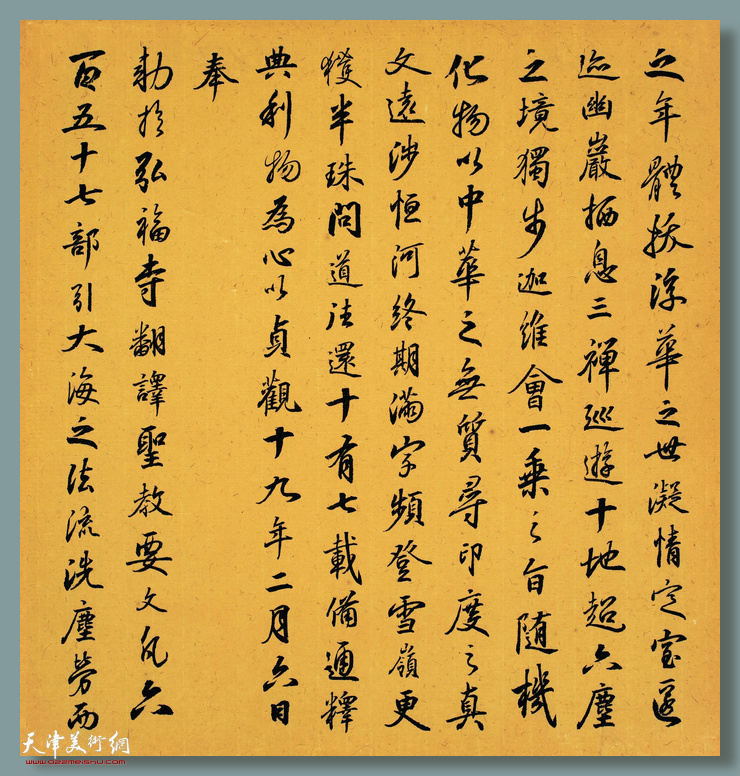 之年體拔浮華之世凝情定室匿
迹幽巖栖息三禪巡遊十地超六塵
之境獨步迦維會一乘之旨随機
化物以中華之無質尋印度之真
文遠涉恒河終期滿字頻登雪嶺更
獲半珠問道往還十有七載備通釋
典利物為心以貞觀十九年二月六日
奉
勅於弘福寺翻譯聖教要文凡六
百五十七部引大海之法流洗塵勞而
天津美術網
www.022meishu.com